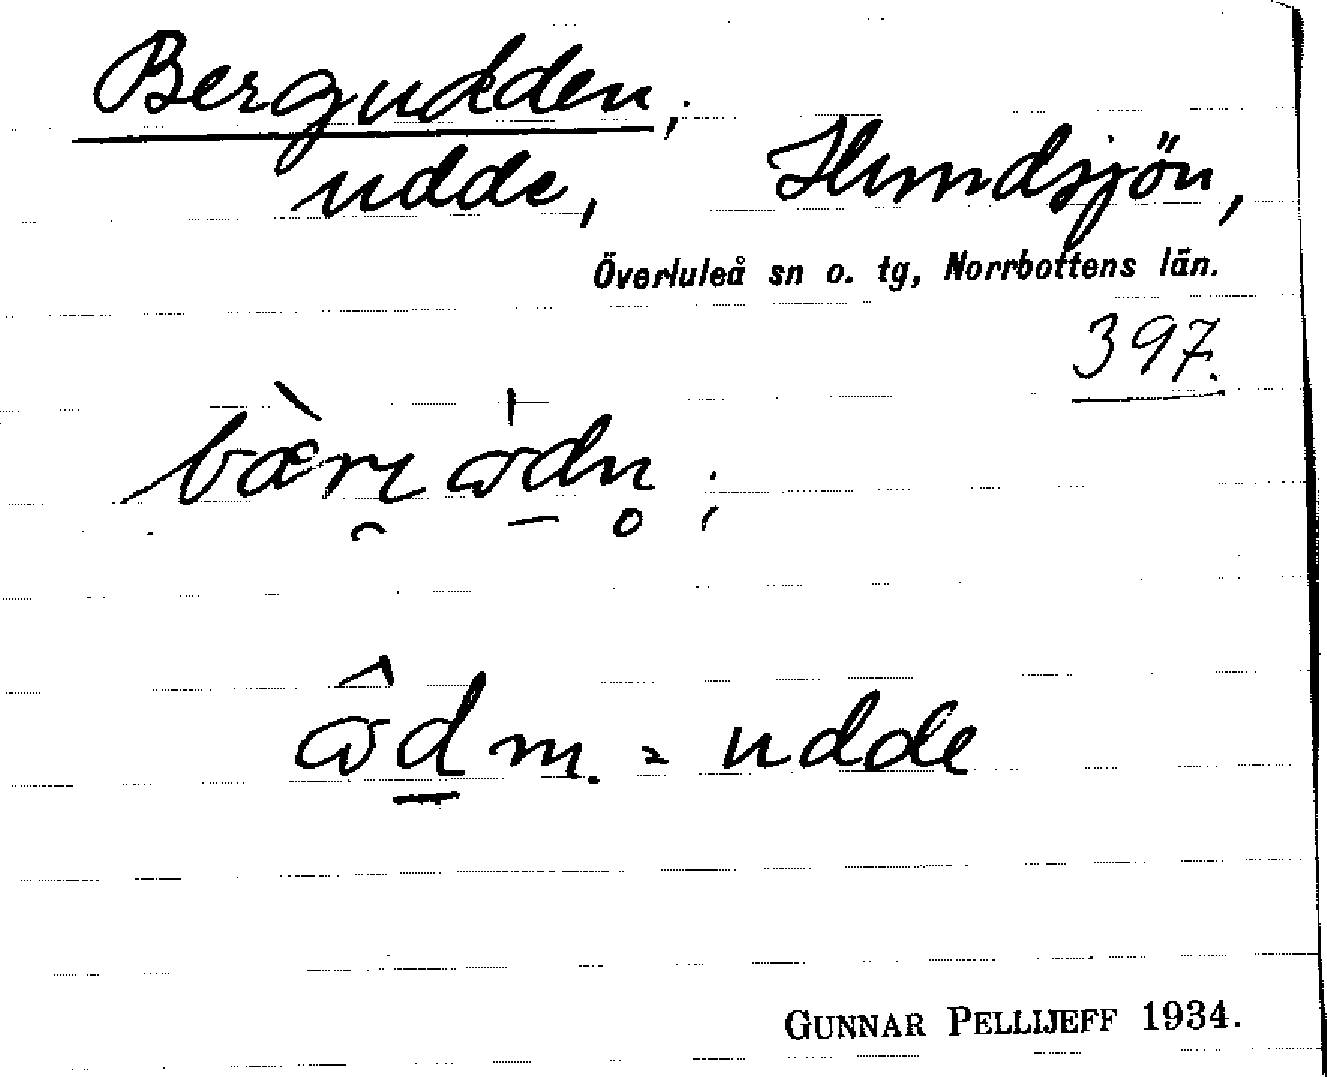 Bergudden,
udde, Hundsjön,
Överluleå sn o. tg, Norrbottens län.
397.
udde
GUNNAR PELLIJEFF 1934.